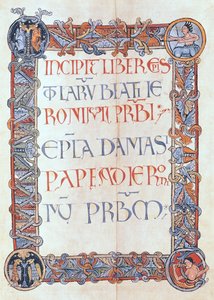 INCIPIT LIBER EPIS
TOLARŪ BEATI IE
RONIMI PRBI:
EPLA DAMASI
PAPE AD IERONI
MŪ PRBM